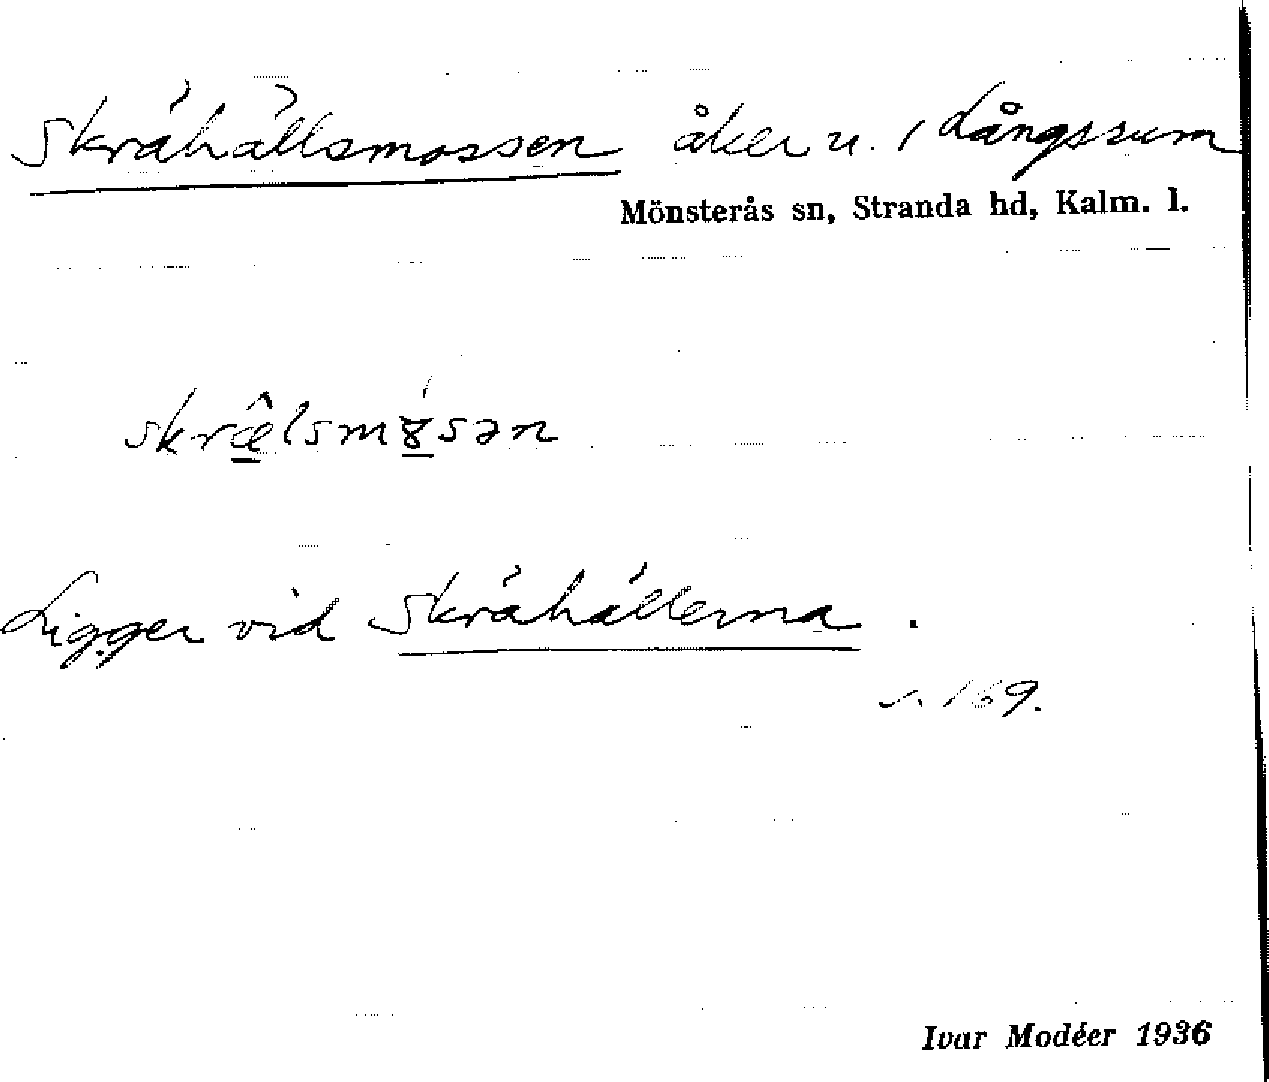 Skrähällsmossen åker u. / Långssum
Mönsterås sn, Stranda hd, Kalm. l.
skræ̂lsmɤ́sən
Ligger vid Skrähällerna.
s. 169.
Ivar Modéer 1936